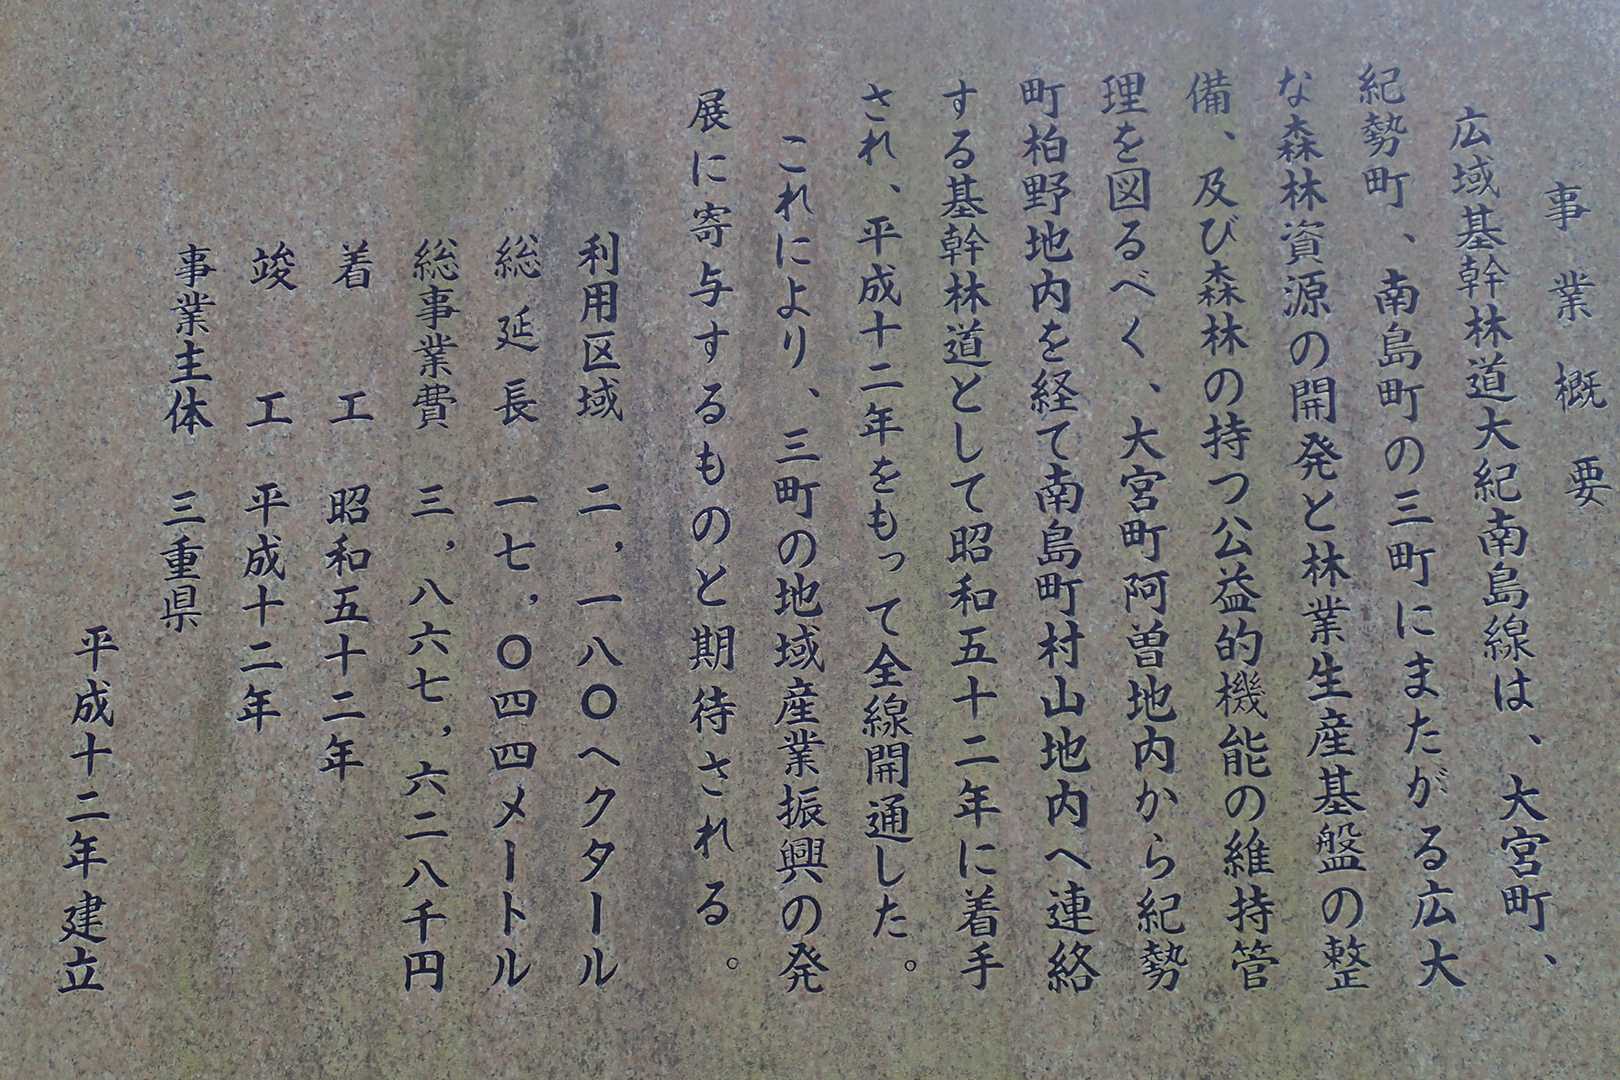 事業概要
広域基幹林道大紀南島線は、大宮町、
紀勢町、南島町の三町にまたがる広大
な森林資源の開発と林業生産基盤の整
備、及び森林の持つ公益的機能の維持管
理を図るべく、大宮町阿曽地内から紀勢
町柏野地内を経て南島町村山地内へ連絡
する基幹林道として昭和五十二年に着手
され、平成十二年をもって全線開通した。
これにより、三町の地域産業振興の発
展に寄与するものと期待される。
利用区域 二,一八〇ヘクタール
総延長 一七,〇四四メートル
総事業費 三,八六七,六二八千円
着工 昭和五十二年
竣工 平成十二年
事業主体 三重県
平成十二年建立